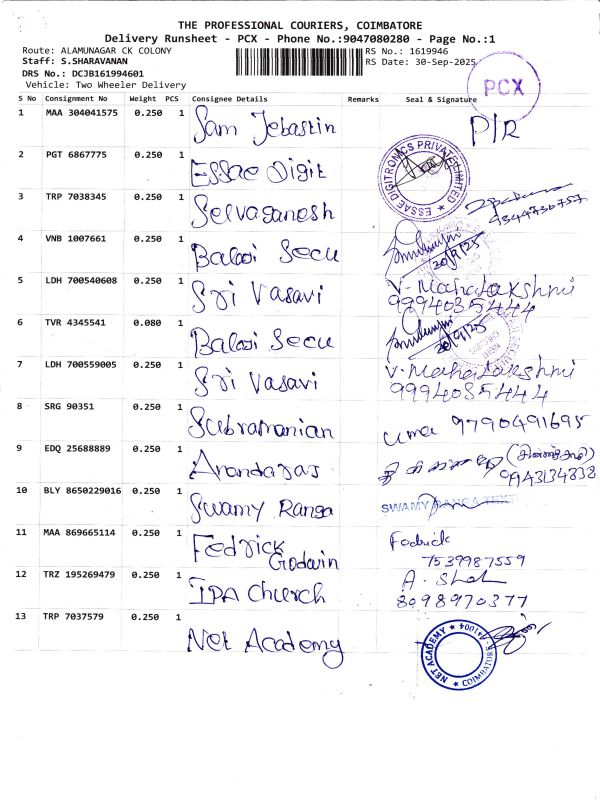 THE PROFESSIONAL COURIERS, COIMBATORE
Delivery Runsheet - PCX - Phone No.:9047080280 - Page No.:1
Route: ALAMUNAGAR CK COLONY RS No.: 1619946
Staff: S.SHARAVANAN RS Date: 30-Sep-2025
DRS No.: DCJB161994601
Vehicle: Two Wheeler Delivery
PCX
S No Consignment No Weight PCS Consignee Details Remarks Seal & Signature
1 MAA 304041575 0.250 1 Sam Jebastin P/R
2 PGT 6867775 0.250 1 Essae Digit
ESSAE DIGITRONICS PRIVATE LIMITED
3 TRP 7038345 0.250 1 Selvaganesh
9344730757
4 VNB 1007661 0.250 1 Balaji Secu
5 LDH 700540608 0.250 1 Sri Vasavi V. Mahalakshmi
9994035444
6 TVR 4345541 0.080 1 Balaji Secu
7 LDH 700559005 0.250 1 Sri Vasavi V. Mahalakshmi
9994035444
8 SRG 90351 0.250 1 Subramanian uma 9790491695
9 EDQ 25688889 0.250 1 Anandaraj
9943134838
10 BLY 8650229016 0.250 1 Swamy Ranga SWAMY RANGA TEXT
11 MAA 869665114 0.250 1 Fedrick Godwin Fedrick
7539987559
12 TRZ 195269479 0.250 1 IPA Church A. Shah
8098970377
13 TRP 7037579 0.250 1 Net Academy
NET ACADEMY COIMBATORE